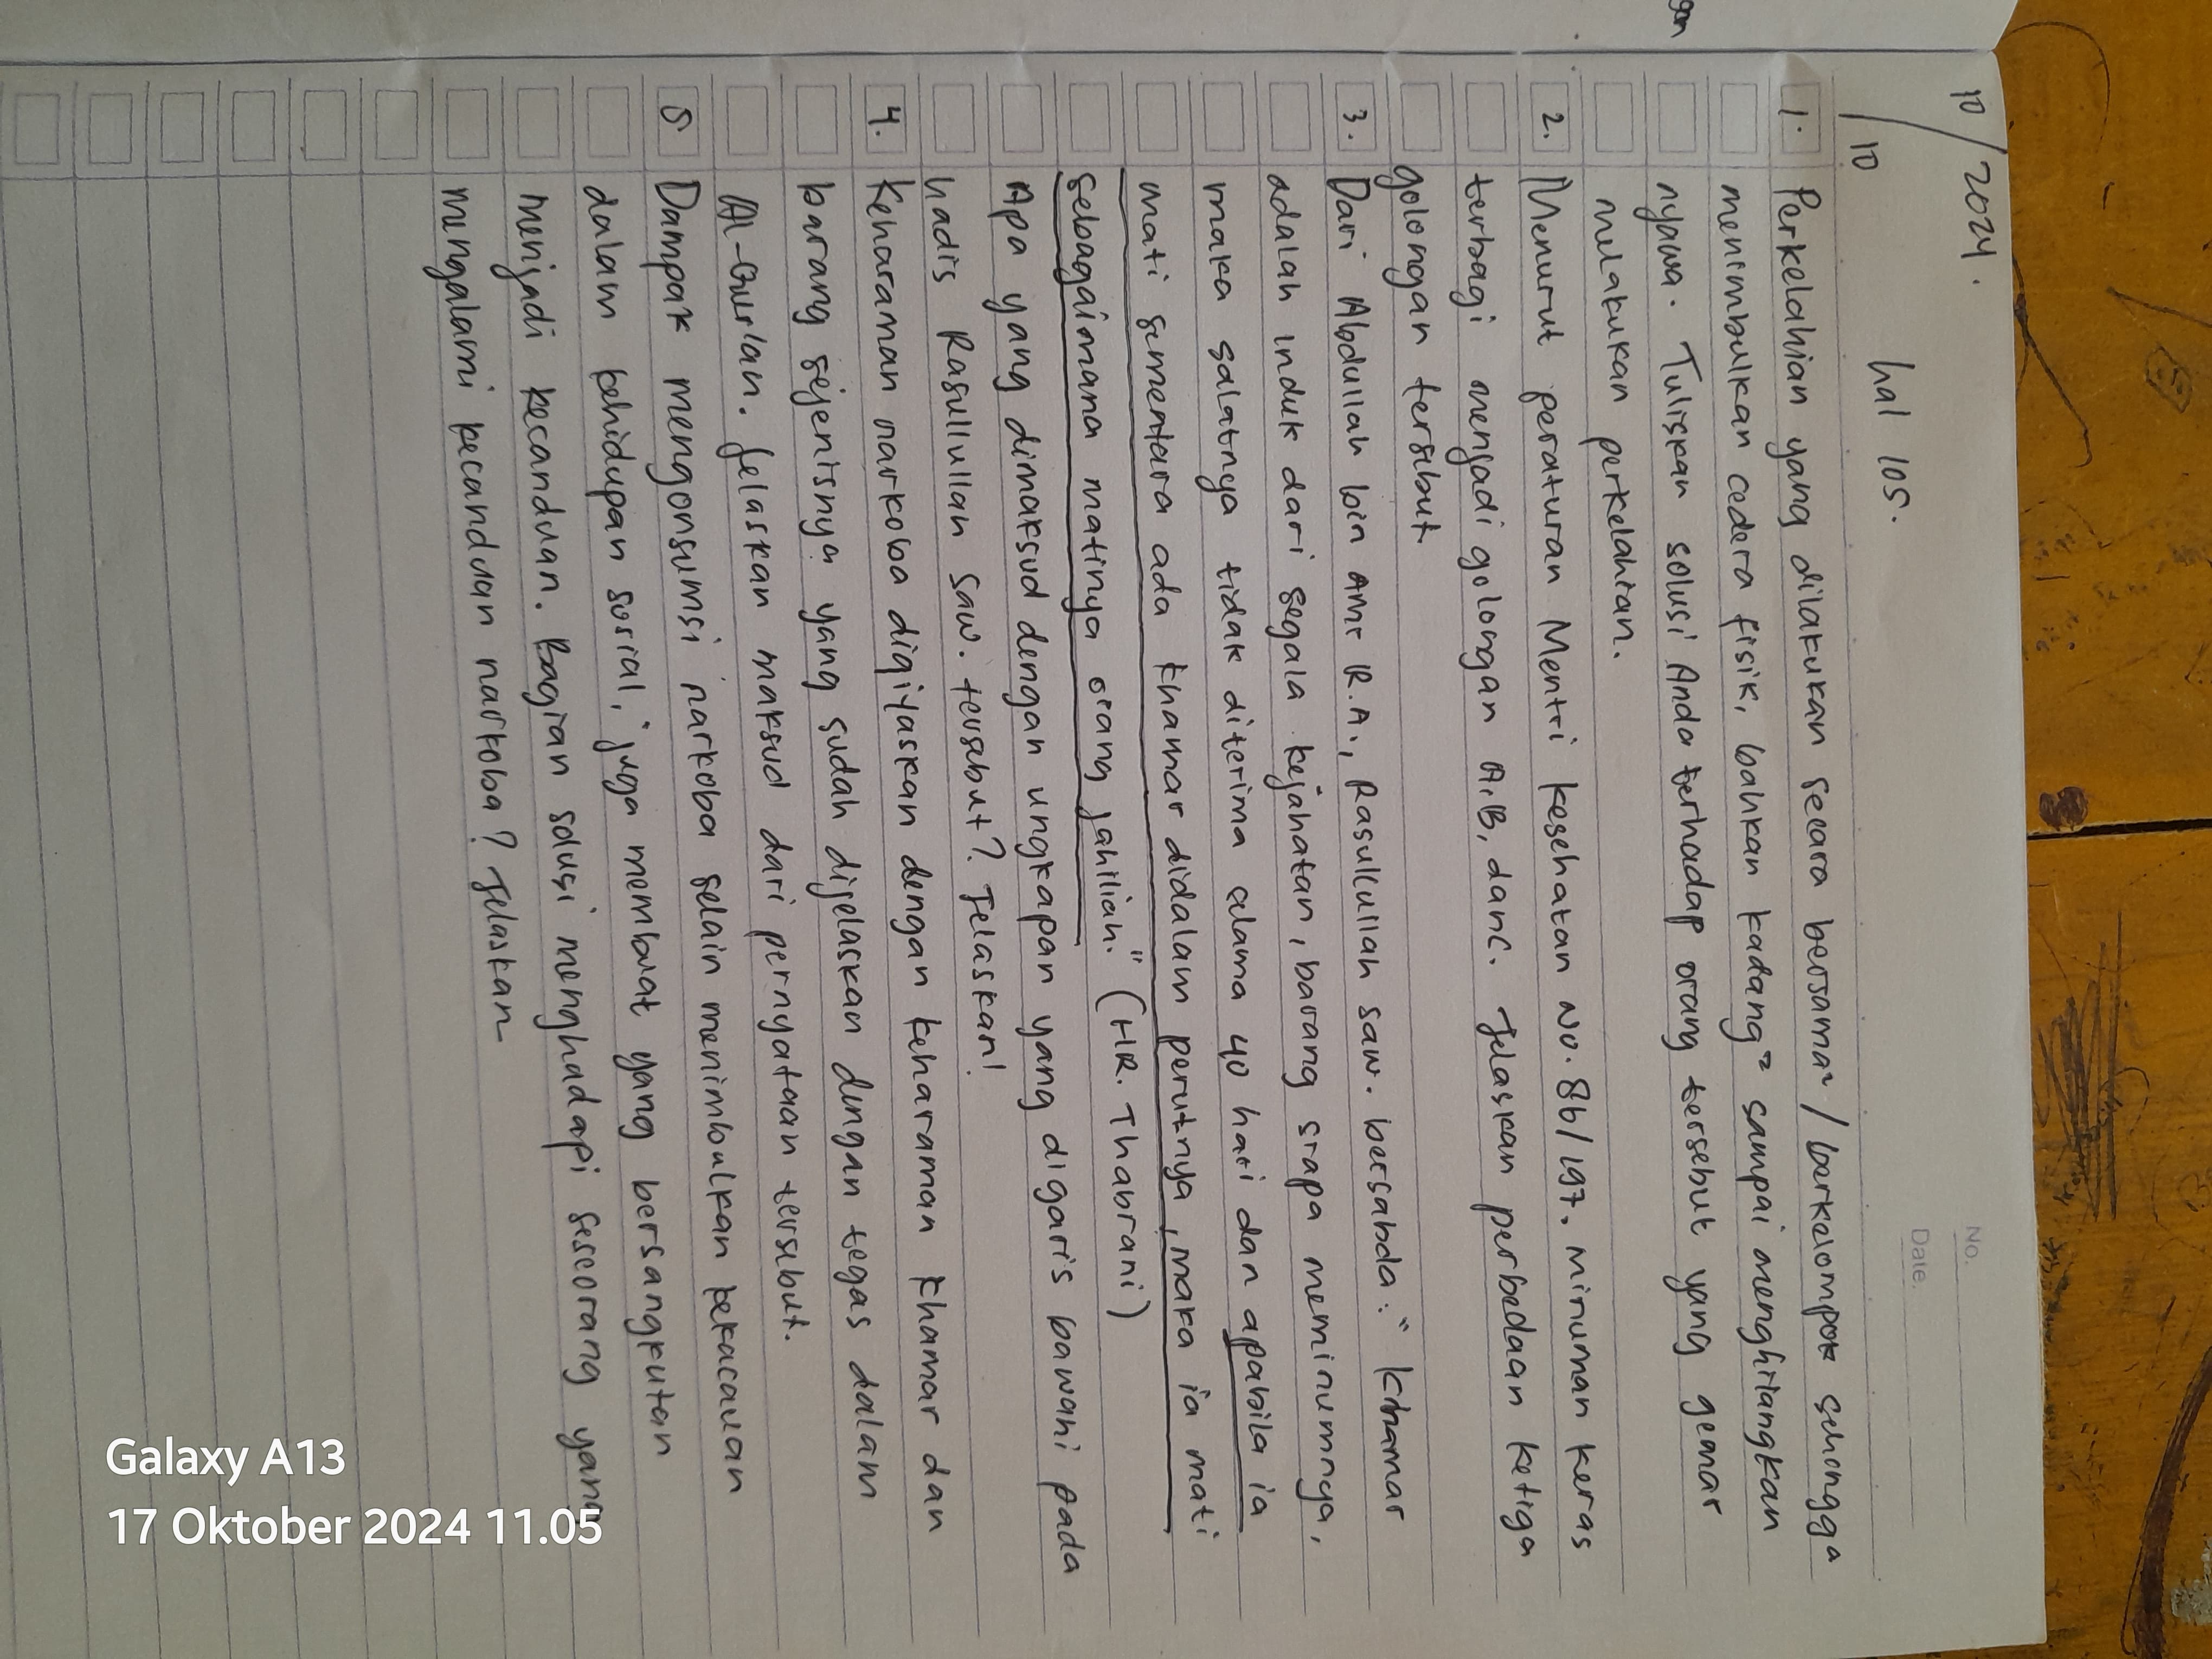 10/10/2024.
hal 105.
No.
Date.
1. Perkelahian yang dilakukan secara bersama² / berkelompok sehingga
menimbulkan cedera fisik, bahkan kadang² sampai menghilangkan
nyawa. Tuliskan solusi Anda terhadap orang tersebut yang gemar
melakukan perkelahian.
2. Menurut peraturan Mentri kesehatan No. 86/197, minuman keras
terbagi menjadi golongan A,B, dan C. Jelaskan perbedaan ketiga
golongan tersebut
3. Dari Abdullah bin Amr R.A., Rasullullah saw. bersabda: "Khamar
adalah induk dari segala kejahatan, barang siapa meminumnya,
maka salatnya tidak diterima selama 40 hari dan apabila ia
mati sementara ada khamar didalam perutnya, maka ia mati
sebagaimana matinya orang jahiliah." (HR. Thabrani)
Apa yang dimaksud dengan ungkapan yang digaris bawahi pada
hadis Rasullullah saw. tersebut? Jelaskan!
4. Keharaman narkoba diqiyaskan dengan keharaman khamar dan
barang sejenisnya yang sudah dijelaskan dengan tegas dalam
Al-Qur'an. Jelaskan maksud dari pernyataan tersebut.
5 Dampak mengonsumsi narkoba selain menimbulkan kekacauan
dalam kehidupan sosial, juga membuat yang bersangkutan
menjadi kecanduan. Bagian solusi menghadapi seseorang yang
mengalami kecanduan narkoba? Jelaskan
Galaxy A13
17 Oktober 2024 11.05